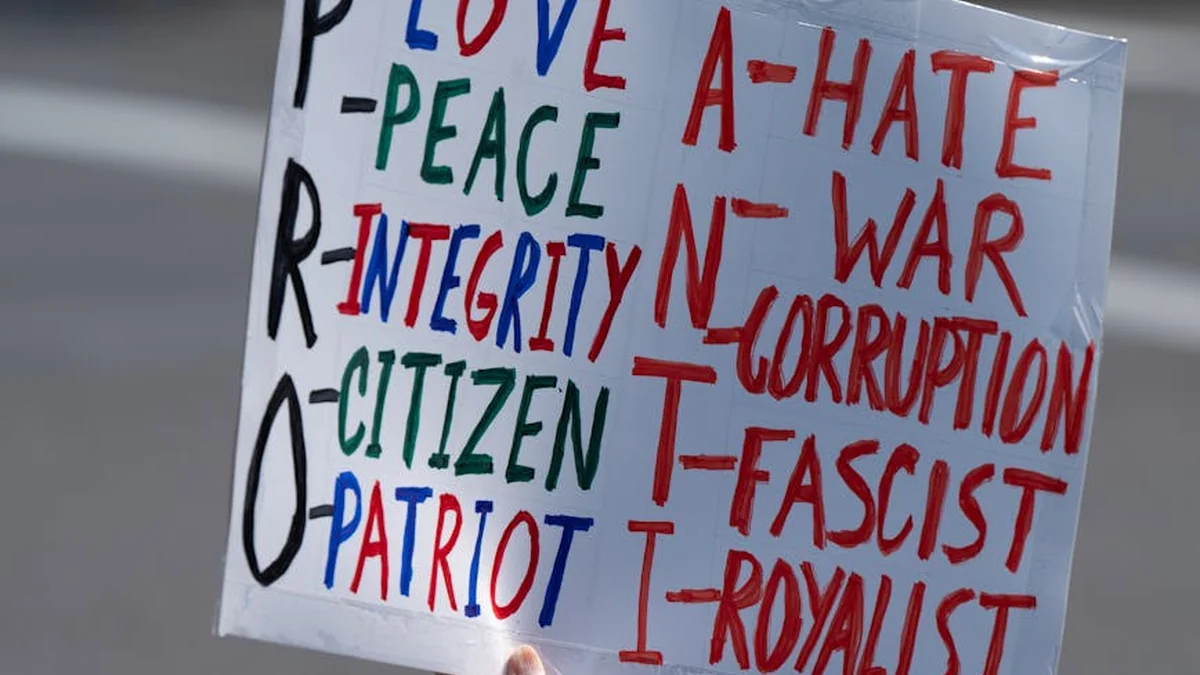 PRO
LOVE
-PEACE
-INTEGRITY
-CITIZEN
-PATRIOT
ANTI
--HATE
- WAR
-CORRUPTION
-FASCIST
-ROYALIST